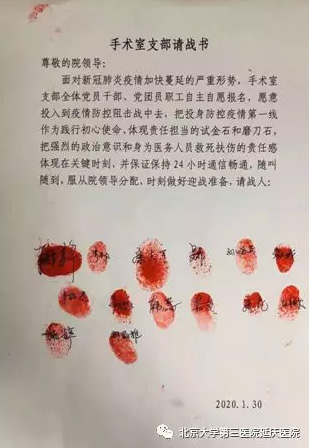 手术室支部请战书
尊敬的院领导：
面对新冠肺炎疫情加快蔓延的严重形势，手术室
支部全体党员干部、党团员职工自主自愿报名，愿意
投入到疫情防控阻击战中去，把投身防控疫情第一线
作为践行初心使命，体现责任担当的试金石和磨刀石，
把强烈的政治意识和身为医务人员救死扶伤的责任感
体现在关键时刻，并保证保持24小时通信畅通，随叫
随到，服从院领导分配，时刻做好迎战准备，请战人：
2020.1.30
北京大学第三医院延庆医院